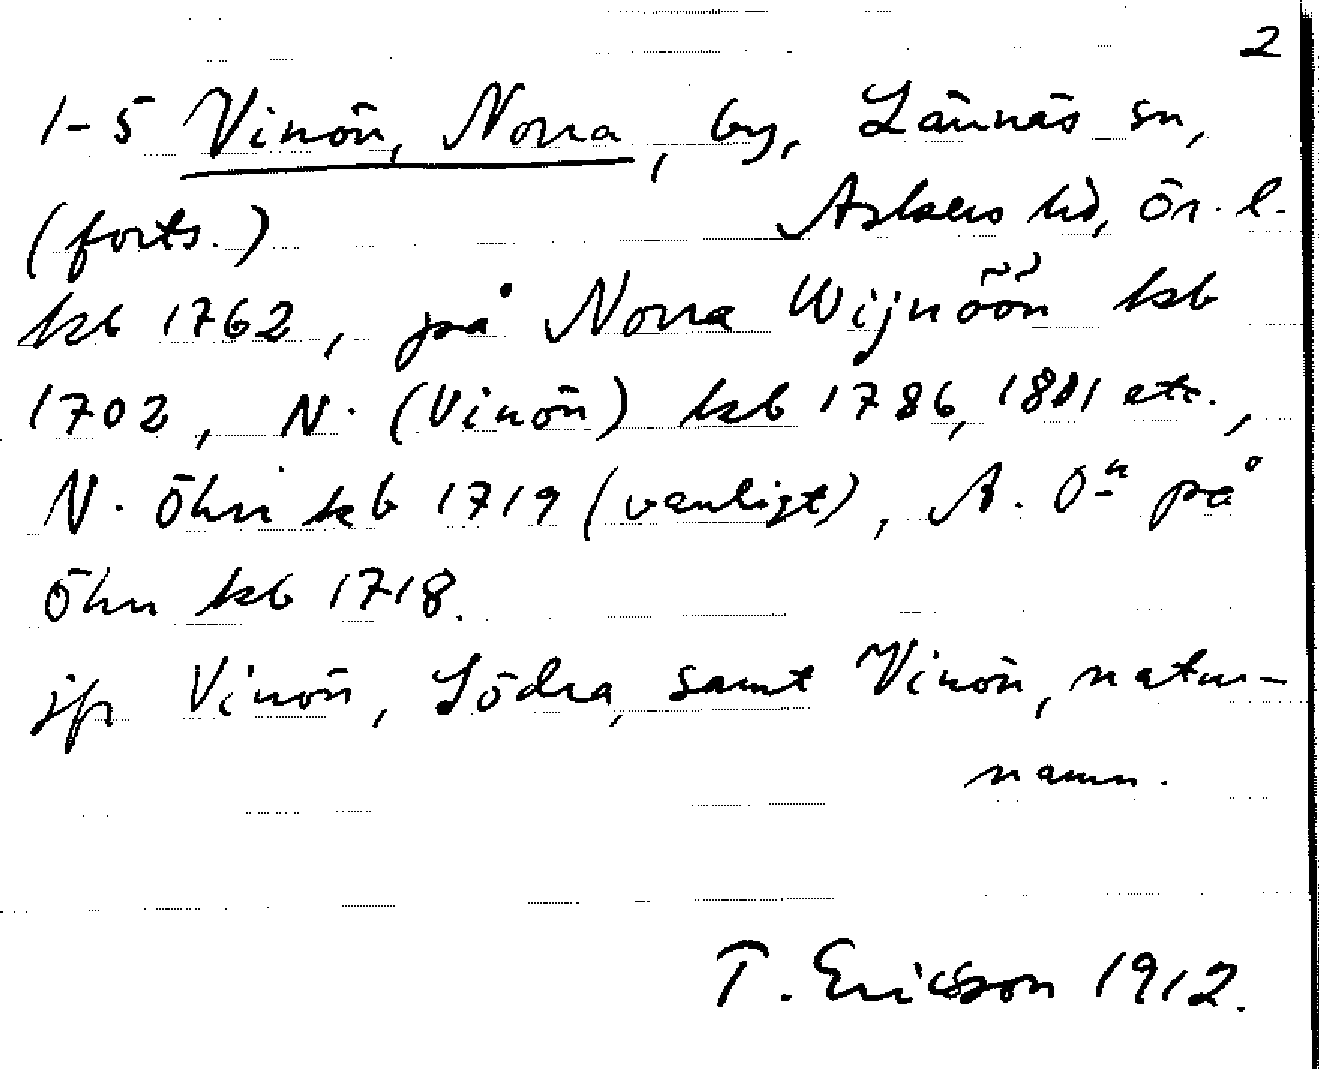 2
1-5 Vinön, Norra, by, Lännäs sn,
(forts.) Askers hd, Ör. l.
kb 1762, på Norra Wijnöön kb
1702, N. (Vinön) kb 1786, 1801 etc.,
N. Öhn kb 1719 (vanligt), N. Ön på
Öhn kb 1718.
jfr Vinön, Södra, samt Vinön, natur-
namn.
T. Ericsson 1912.